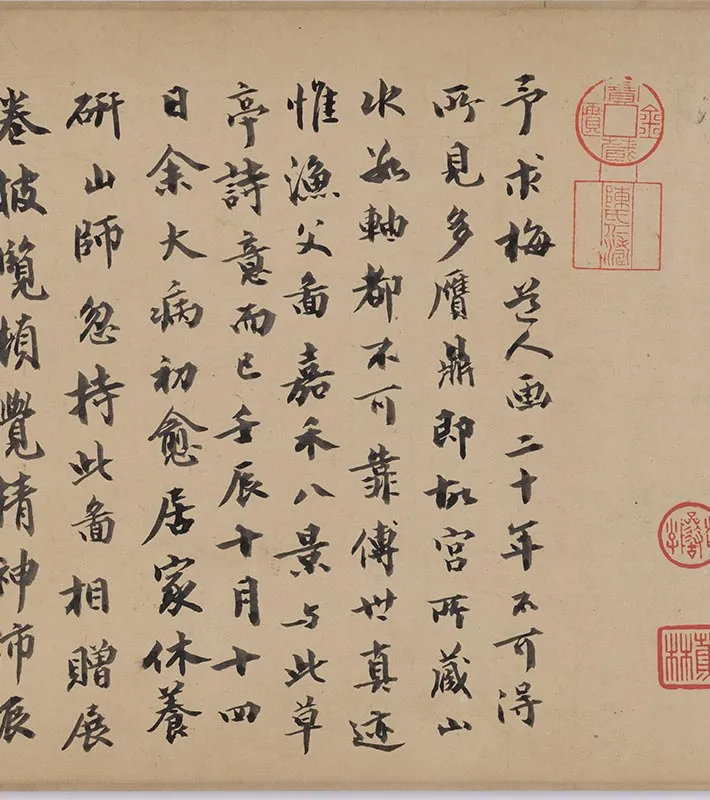 金匱寶藏
陳氏仁濤
予求梅道人画二十年不可得
所見多贗鼎即故宮所藏山
水数軸都不可靠傳世真迹
惟漁父圖嘉禾八景与此草
亭詩意而已壬辰十月十四
日余大病初愈居家休養
研山師忽持此圖相贈展
卷披覽頓覺精神沛